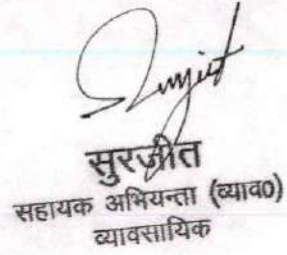 Surjit
सुरजीत
सहायक अभियन्ता (व्याव0)
व्यावसायिक